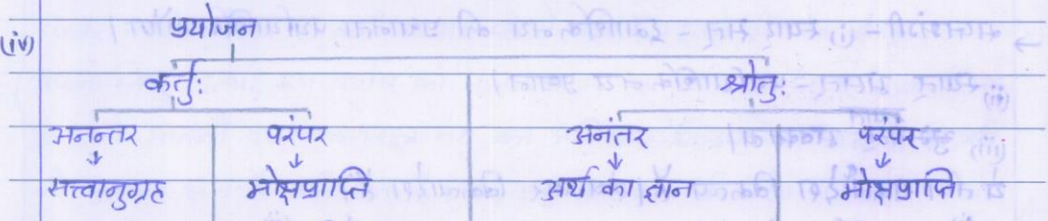 (iv) प्रयोजन
कर्तुः श्रोतुः
अनन्तर परंपर अनंतर परंपर
↓ ↓ ↓ ↓
सत्त्वानुग्रह मोक्षप्राप्ति अर्थ का ज्ञान मोक्षप्राप्ति